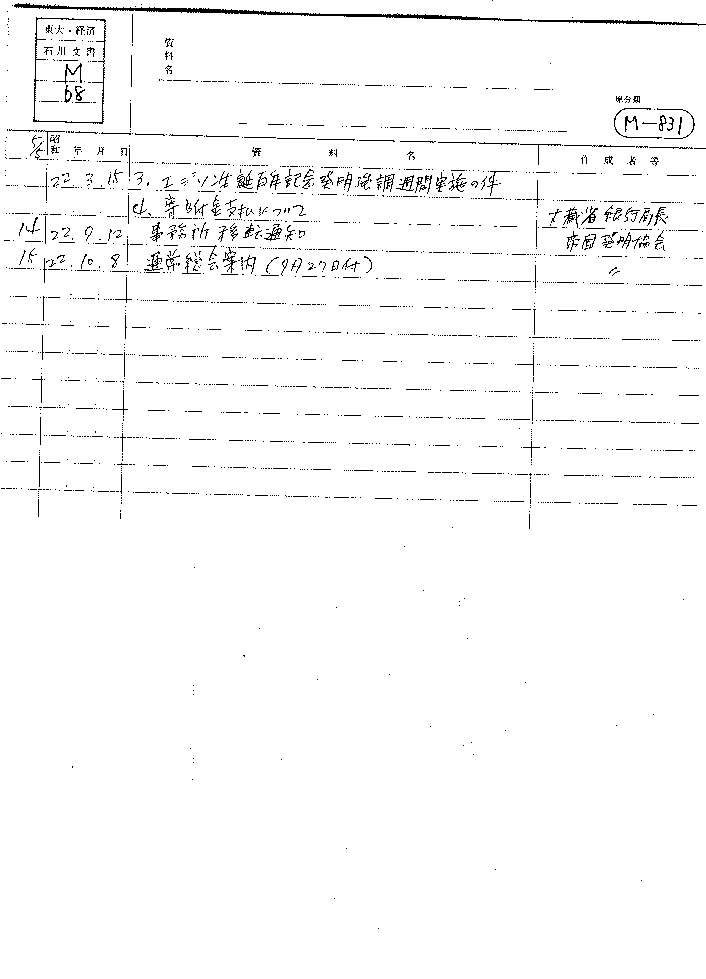 東大・経済
石川文書
M
68
資料名
原分類
M-831
5/5 昭和 年 月 日 資料名 作成者等
22. 3. 15 3. エジソン生誕百年記念発明強調週間実施の件
4. 寄附金支払について 大蔵省銀行局長
14 22. 9. 12 事務所移転通知 帝国発明協会
15 22. 10. 8 通常総会案内(9月27日付) 〃